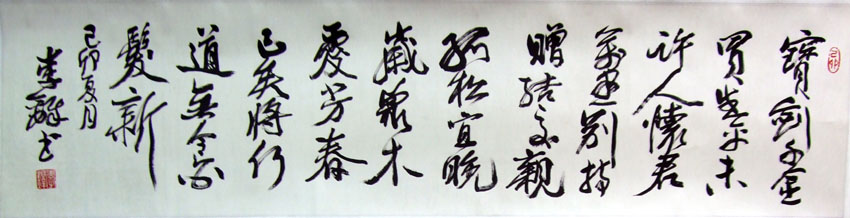 寶劍千金
買生平未
許人懷君
萬里别持
贈結交親
孤松宜晚
歲眾木
愛芳春
已矣將何
道無令白
髮新
己卯夏月
李书